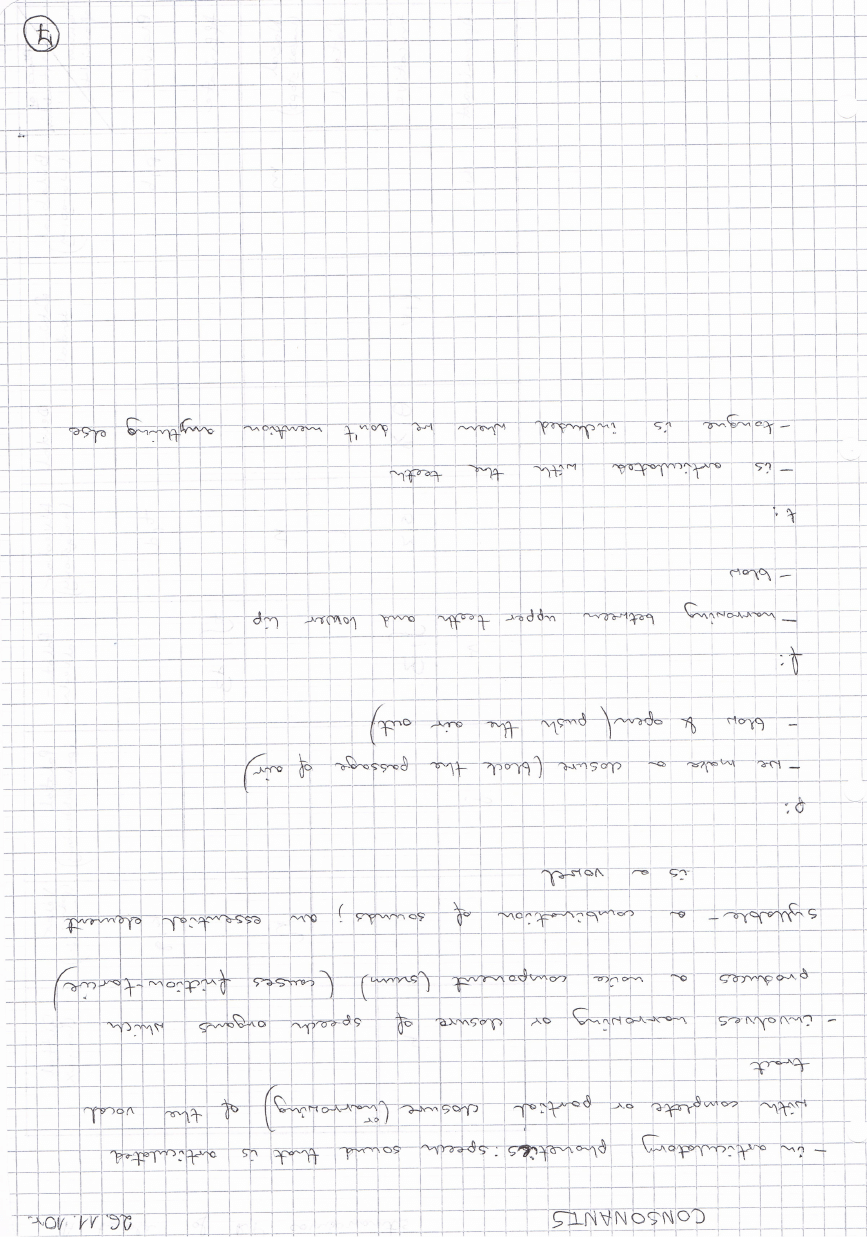 CONSONANTS 26.11.10r.
- in articulatory phonetics: speech sound that is articulated
with complete or partial closure (or narrowing) of the vocal
tract
- involves narrowing or closure of speech organs which
produces a voice component (szum) (causes friction-tarcie)
syllable - a combination of sounds; an essential element
is a vowel
p:
- we make a closure (block the passage of air)
- blow & open (push the air out)
f:
- narrowing between upper teeth and lower lip
- blow
t:
- is articulated with the teeth
- tongue is included when we don't mention anything else
7